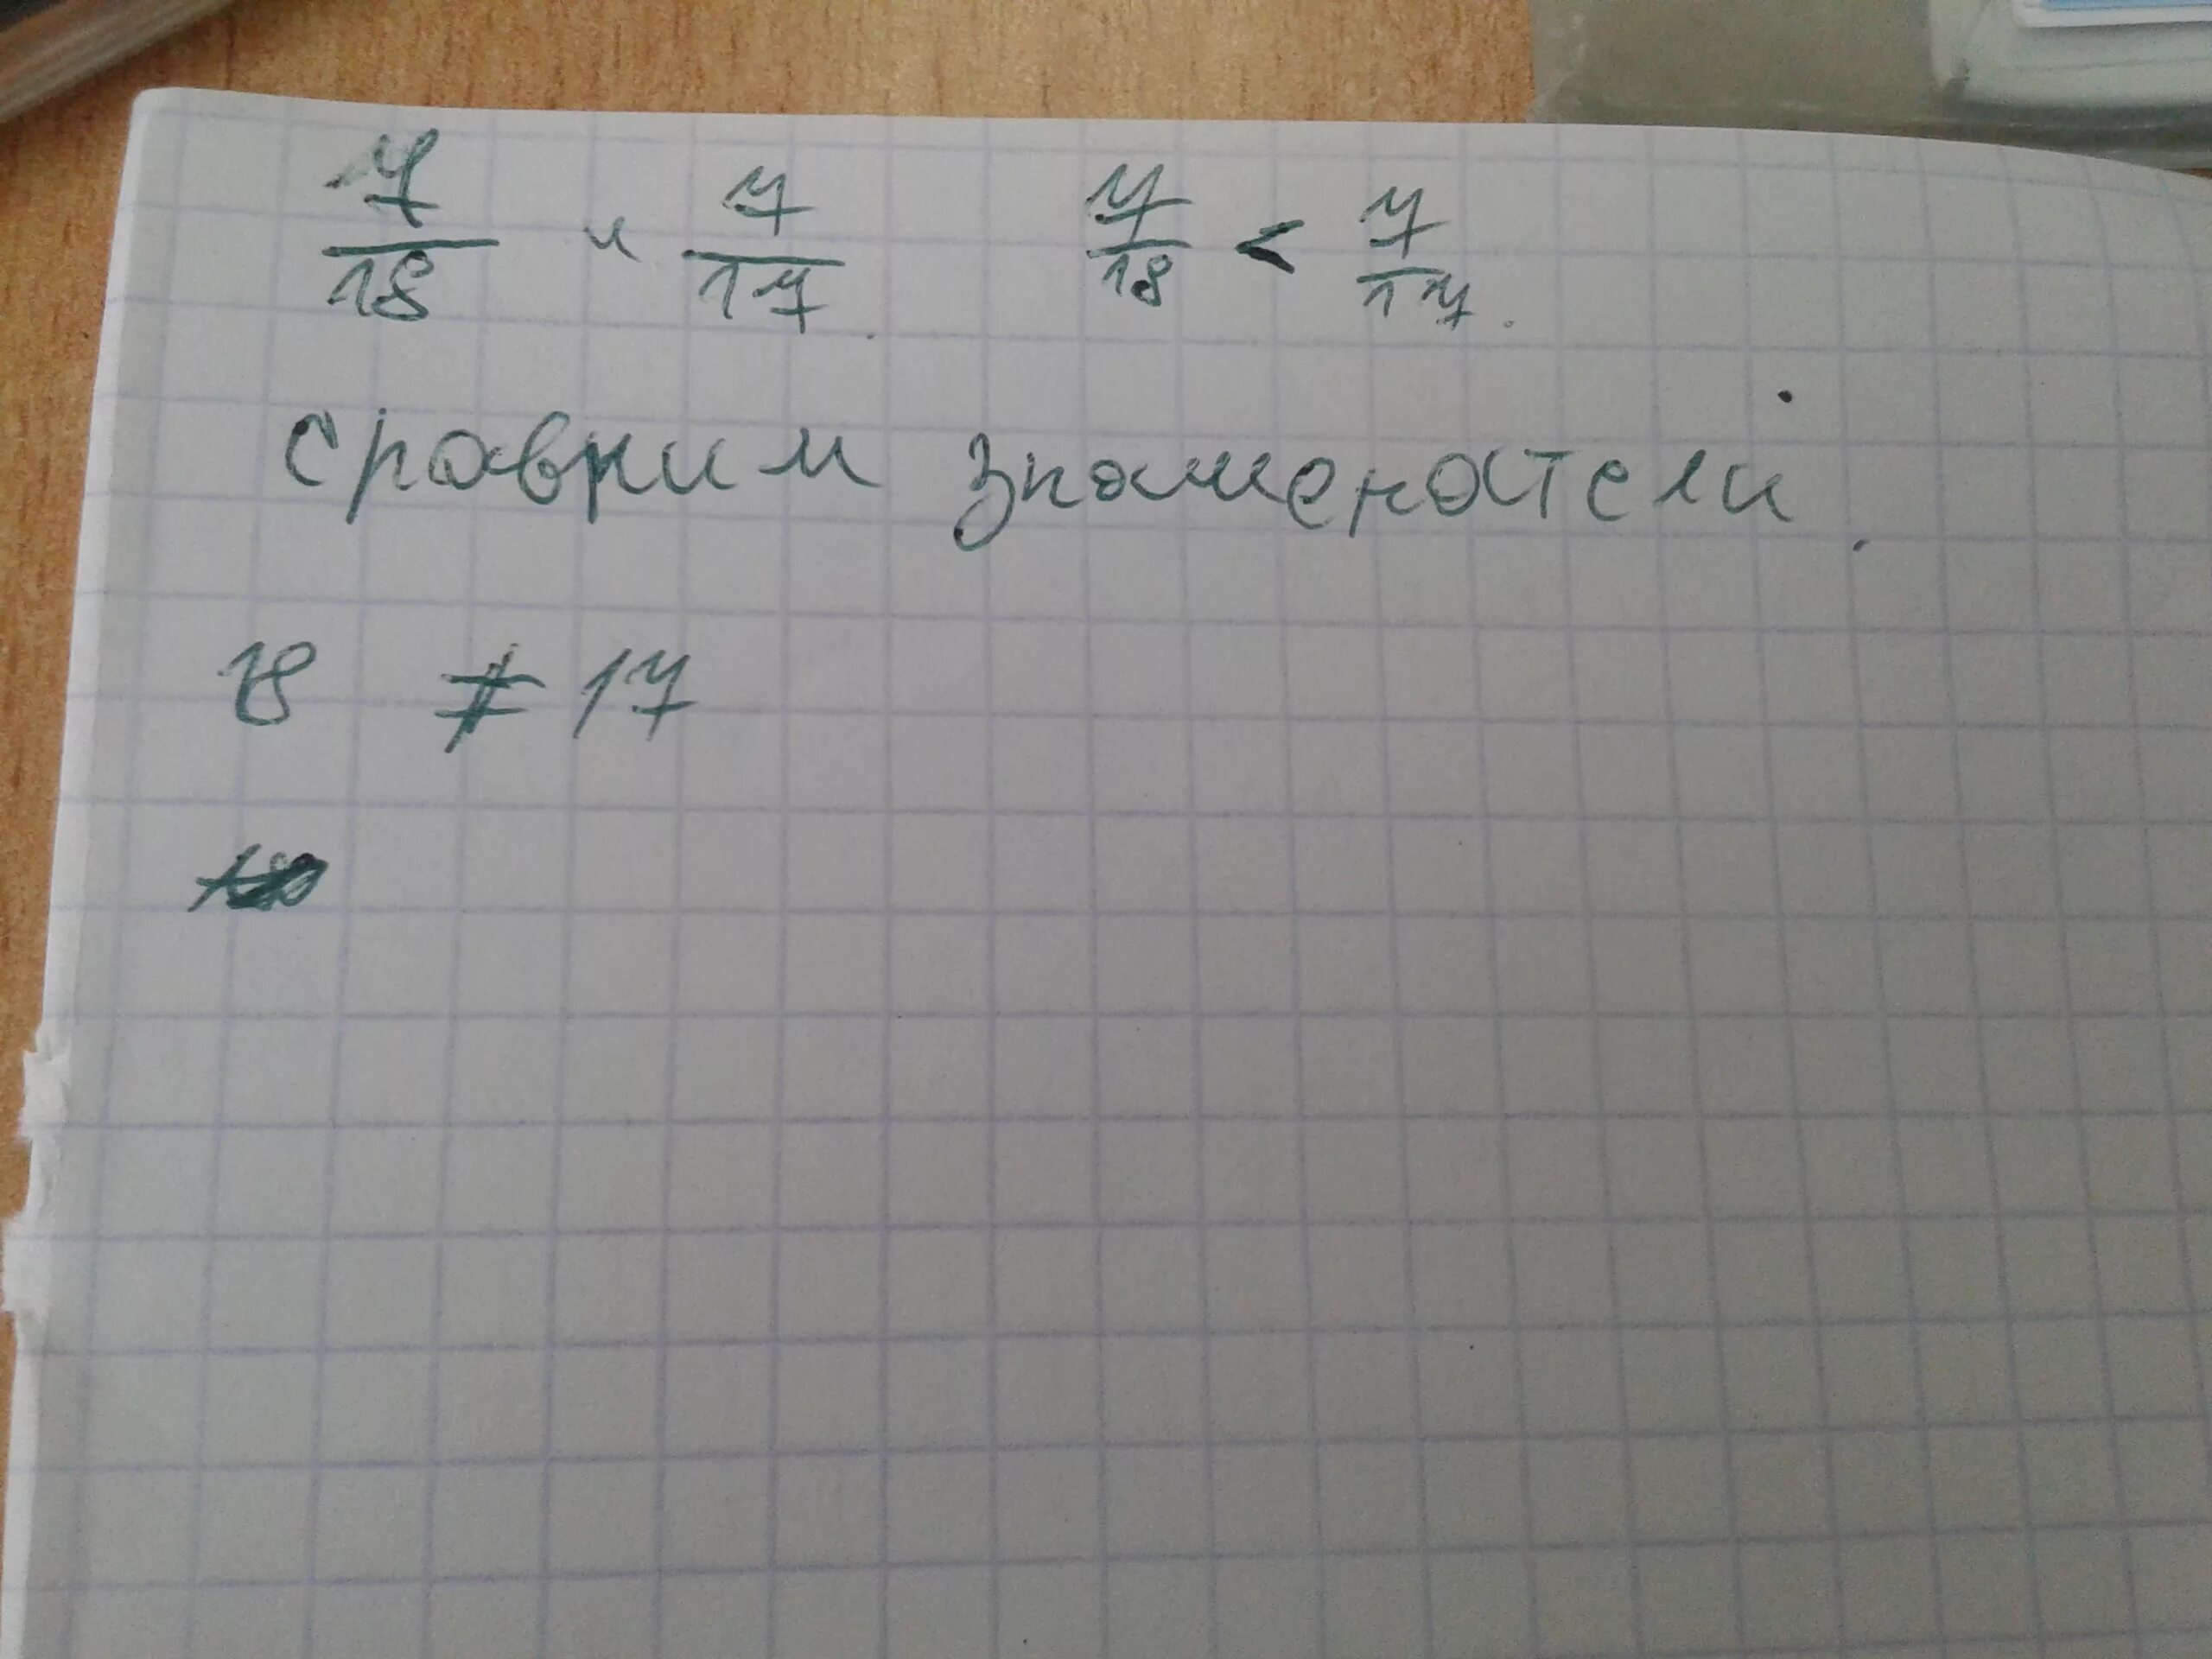 7/18 и 7/17. 7/18 < 7/17.
сравним знаменатели.
18 ≠ 17